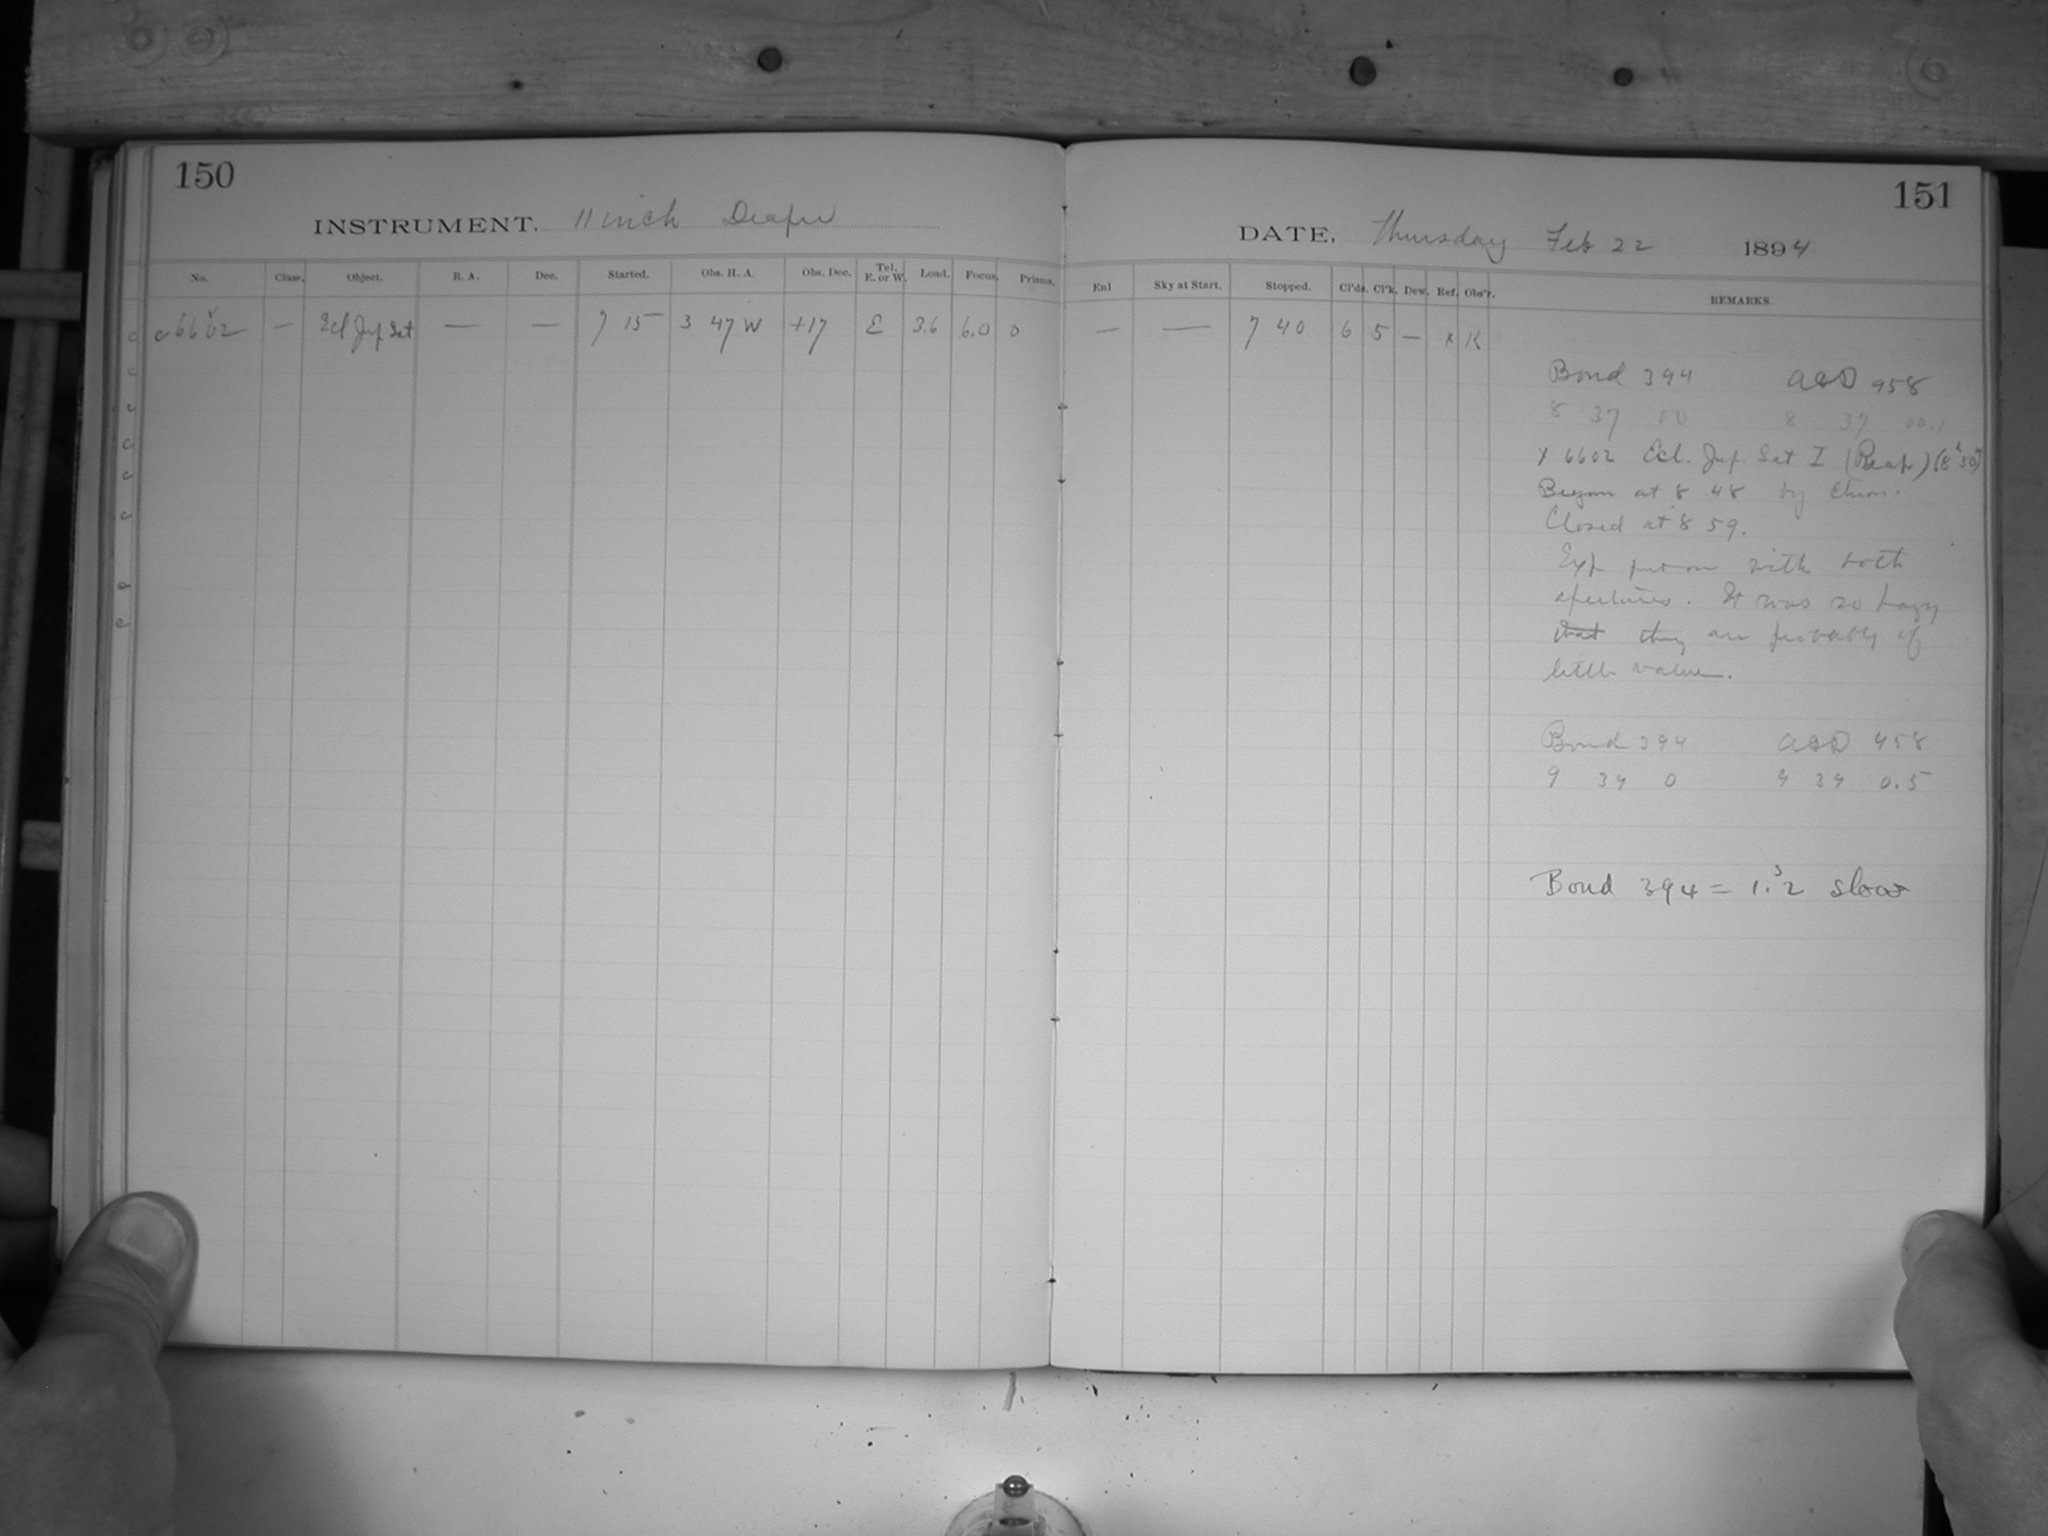 150
INSTRUMENT, 11 inch Draper
No. Class. Object. R. A. Dec. Started. Obs. H. A. Obs. Dec. Tel. E. or W. Load. Focus. Prisms.
c 6602 — Ecl Jup Sat — — 7 15 3 47 W +17 E 3.6 6.0 0
151
DATE, Thursday Feb 22 1894
Enl Sky at Start. Stopped. Cl'ds. Cl'k. Dew. Ref. Obs'r. REMARKS.
— — 7 40 6 5 — x K
Bond 394 958
8 37 00 8 37 00.1
x 6602 Ecl. Jup. Sat I (Reap) (8h 50m)
Began at 8 48 by Chron.
Closed at 8 59.
Exp put on with both
apertures. It was so hazy
that they are probably of
little value.
Bond 394 958
9 39 0 9 39 0.5
Bond 394 = 1.s2 slow